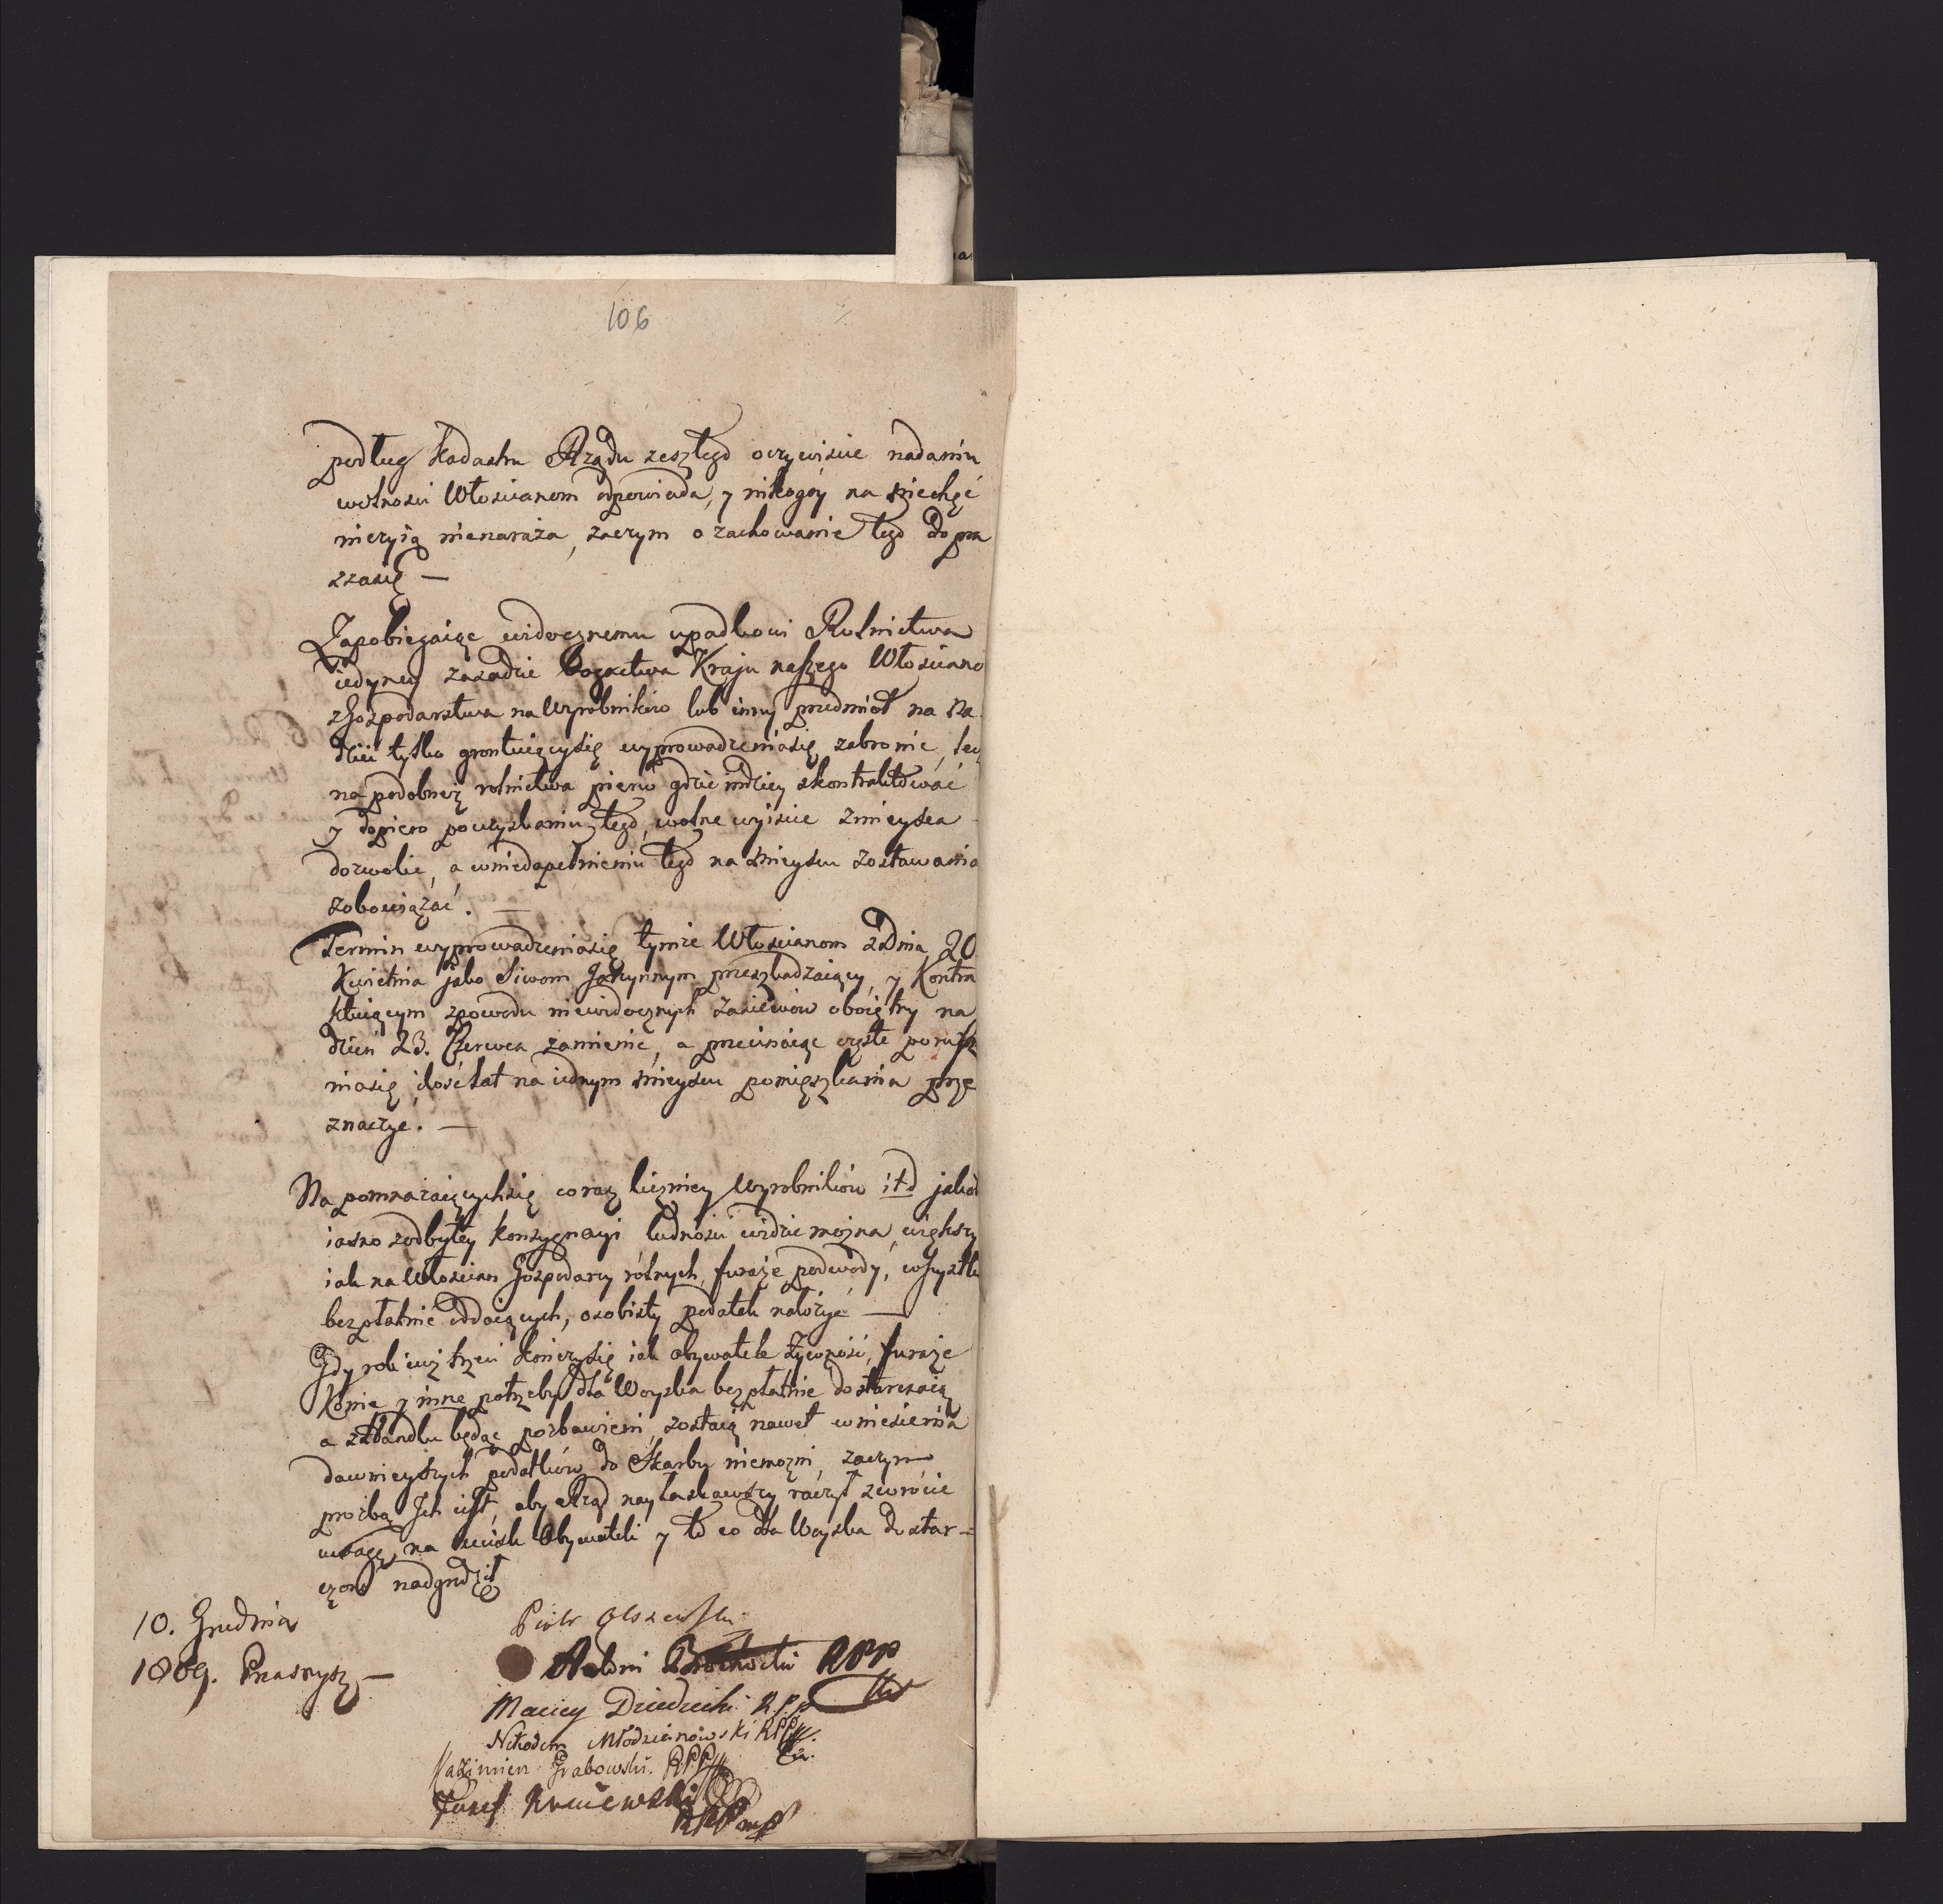 106
podług Kadastru Rządu zeszłego oczywiście nadaniu
wolności Włościanom odpowiada, y nikogóy na niechęć
niczyią nienaraża, zaczym o zachowanie tego dopra
szasię —
Zapobiegaiąc widocznemu upadkowi Rolnictwa
iedyney zasadzie bogactwa Kraju naszego Włościano
zGospodarstwa na Wyrobników lub inny przedmiot na
tylko wyprowadzeniasię zabronić,
na podobnerz rolnictwa pierw gdzieindziey skontraktować
y dopiero pouzyskaniu tego, wolne wyiście zmieysca
dozwolić, a wniedopełnieniu tego na mieyscu zostawania
zobowiązać. —
Termin wyprowadzeniasię tymże Włościanom zdnia 20
Kwietnia jako Siwom Jarzynnym przeszkadzaiący, y Kontra
ktuiącym zpowodu niewidocznych zasiewów oboiętny na
dzień 23. Czerwca zamienić, a przecinaiąc częste porusz
niasię ilość lat na iednym mieyscu pomięszkania prze
znaczyć. —
Na pomnażaiącychsię coraz liczniey Wyrobników itd jako
iasno zodbyłey konsygnacyi ludności widzieć można, większy
iak na Włościan Gospodarzy rólnych, furaże podwody, wszystko
bezpłatnie oddaiących, osobisty podatek nałożyć —
Gdy rok iuż trzeci kończysię iak Obywatele żywność, furaże
Konie y inne potrzeby dla Woyska bezpłatnie dostarczaią
a zHandlu będąc pozbawieni, zostaią nawet wniesienia
dawnieyszych podatków do Skarbu niemożni, zaczym
prożba Ich iest, aby Rząd nayłaskawszy raczył zwrócić
uwagę na ucisk Obywateli y to co dla Woyska dostar=
czono nadgrodził
10. Grudnia
1809. Przasnysz —
Piotr Olszewski
Antoni Brochocki RPP
Maciey Dziedzicki R.P.P
Nikodem Młodzianowski RPP
Kazimierz Grabowski. RPP
Jozef Kraiewski
RPP mp